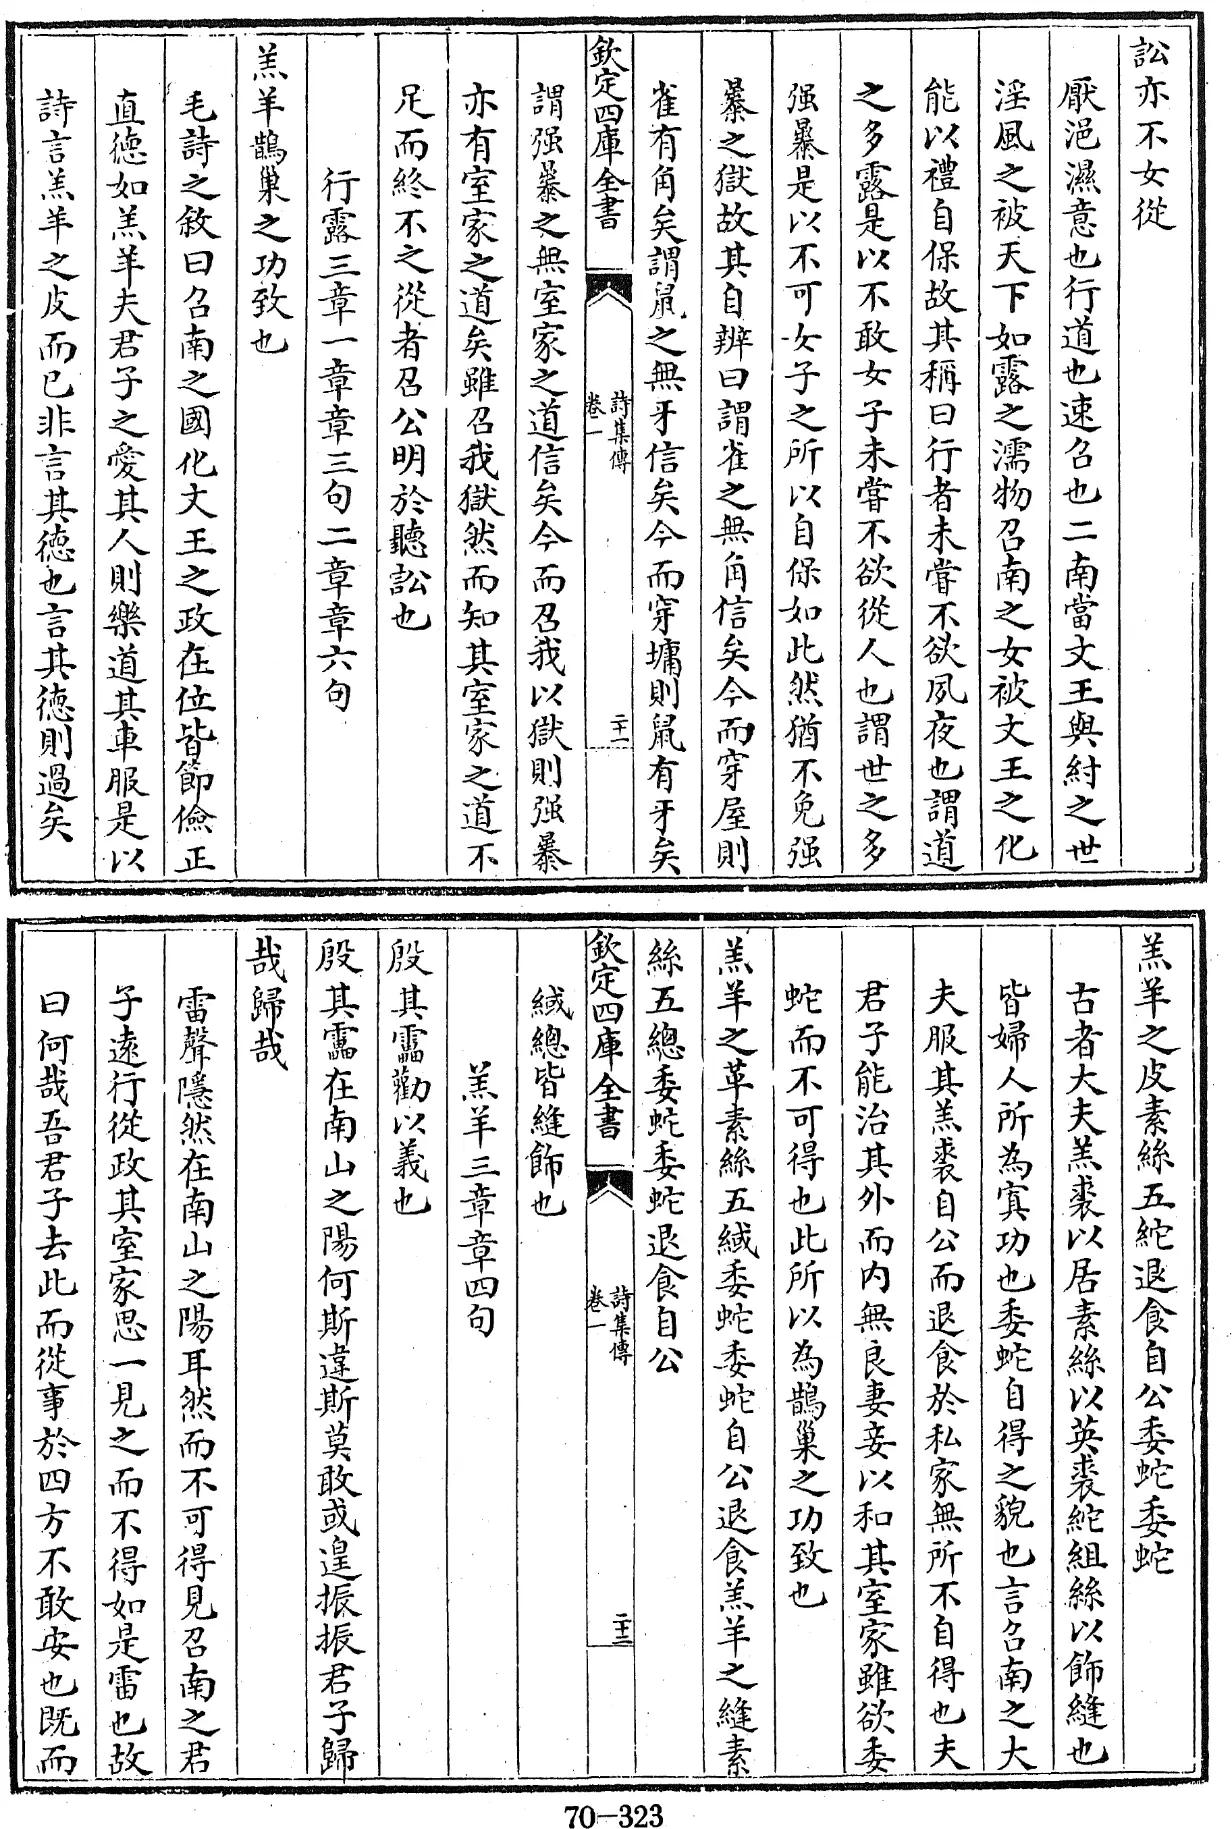 訟亦不女從
厭浥濕意也行道也速召也二南當文王與紂之世
淫風之被天下如露之濡物召南之女被文王之化
能以禮自保故其稱曰行者未嘗不欲夙夜也謂道
之多露是以不敢女子未嘗不欲從人也謂世之多
强暴是以不可女子之所以自保如此然猶不免强
暴之獄故其自辨曰謂雀之無角信矣今而穿屋則
雀有角矣謂鼠之無牙信矣今而穿墉則鼠有牙矣
欽定四庫全書
詩集傳
卷一
二十二
謂强暴之無室家之道信矣今而召我以獄則强暴
亦有室家之道矣雖召我獄然而知其室家之道不
足而終不之從者召公明於聽訟也
行露三章一章章三句二章章六句
羔羊鵲巢之功致也
毛詩之敘曰召南之國化文王之政在位皆節儉正
直德如羔羊夫君子之愛其人則樂道其車服是以
詩言羔羊之皮而已非言其德也言其德則過矣
羔羊之皮素絲五紽退食自公委蛇委蛇
古者大夫羔裘以居素絲以英裘紽組絲以飾縫也
皆婦人所為寘功也委蛇自得之貌也言召南之大
夫服其羔裘自公而退食於私家無所不自得也夫
君子能治其外而内無良妻妾以和其室家雖欲委
蛇而不可得也此所以為鵲巢之功致也
羔羊之革素絲五緎委蛇委蛇自公退食羔羊之縫素
絲五總委蛇委蛇退食自公
欽定四庫全書
詩集傳
卷一
二十三
緎總皆縫飾也
羔羊三章章四句
殷其靁勸以義也
殷其靁在南山之陽何斯違斯莫敢或遑振振君子歸
哉歸哉
雷聲隱然在南山之陽耳然而不可得見召南之君
子遠行從政其室家思一見之而不得如是雷也故
曰何哉吾君子去此而從事於四方不敢安也既而
70-323